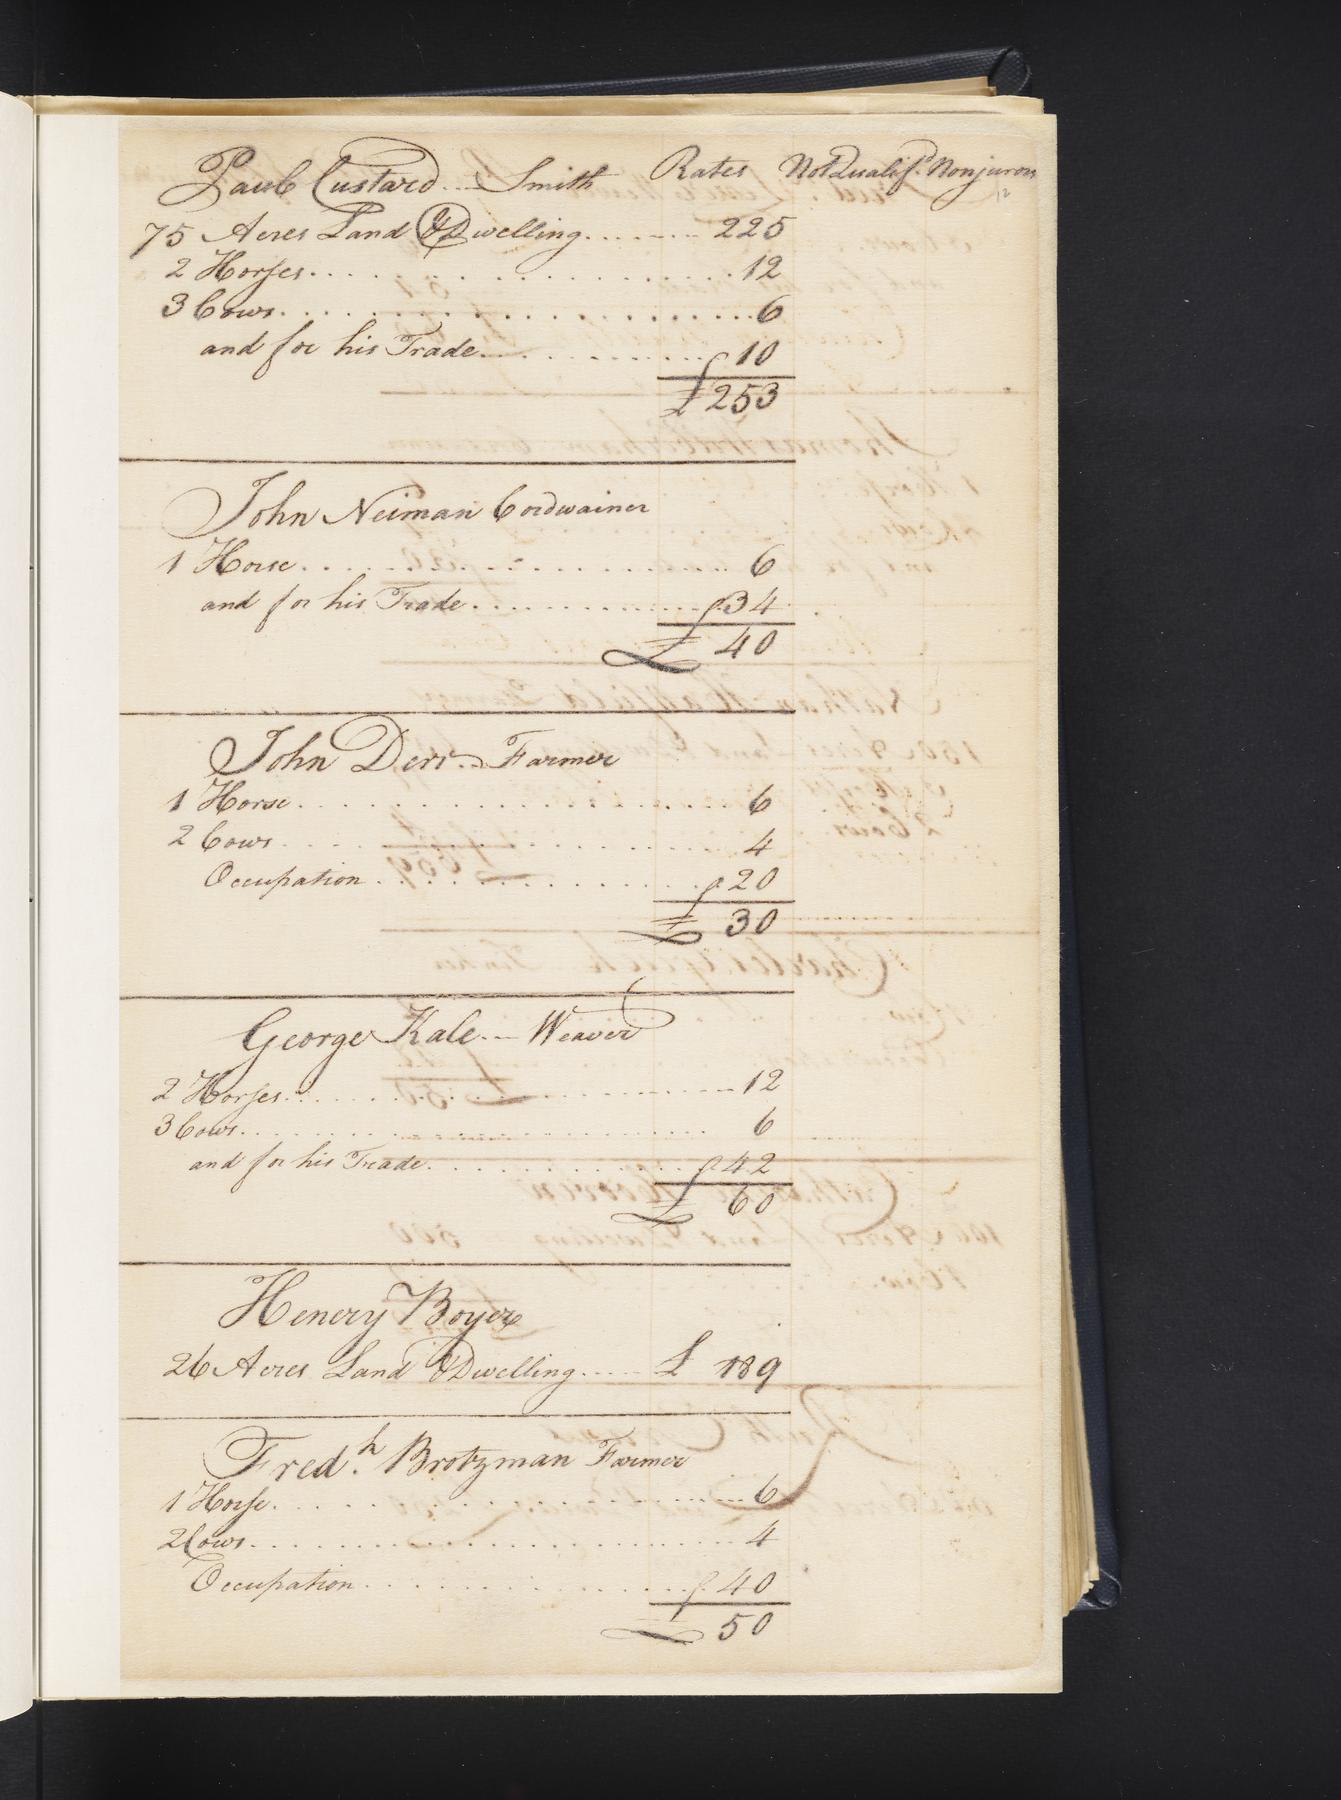 Paul Custard --- Smith Rates Not Qualifd. Nonjurors
12
75 Acres Land & Dwelling ........ 225
2 Horses ........ 12
3 Cows ........ 6
and for his Trade ........ 10
£ 253
John Neiman Cordwainer
1 Horse ........ 6
and for his Trade ........ 34
£ 40
John Derr --- Farmer
1 Horse ........ 6
2 Cows ........ 4
Occupation ........ 20
£ 30
George Kale --- Weaver
2 Horses ........ 12
3 Cows ........ 6
and for his Trade ........ 42
£ 60
Henery Boyer
26 Acres Land & Dwelling ........ £ 189
Fredh. Brotzman Farmer
1 Horse ........ 6
2 Cows ........ 4
Occupation ........ 40
£ 50